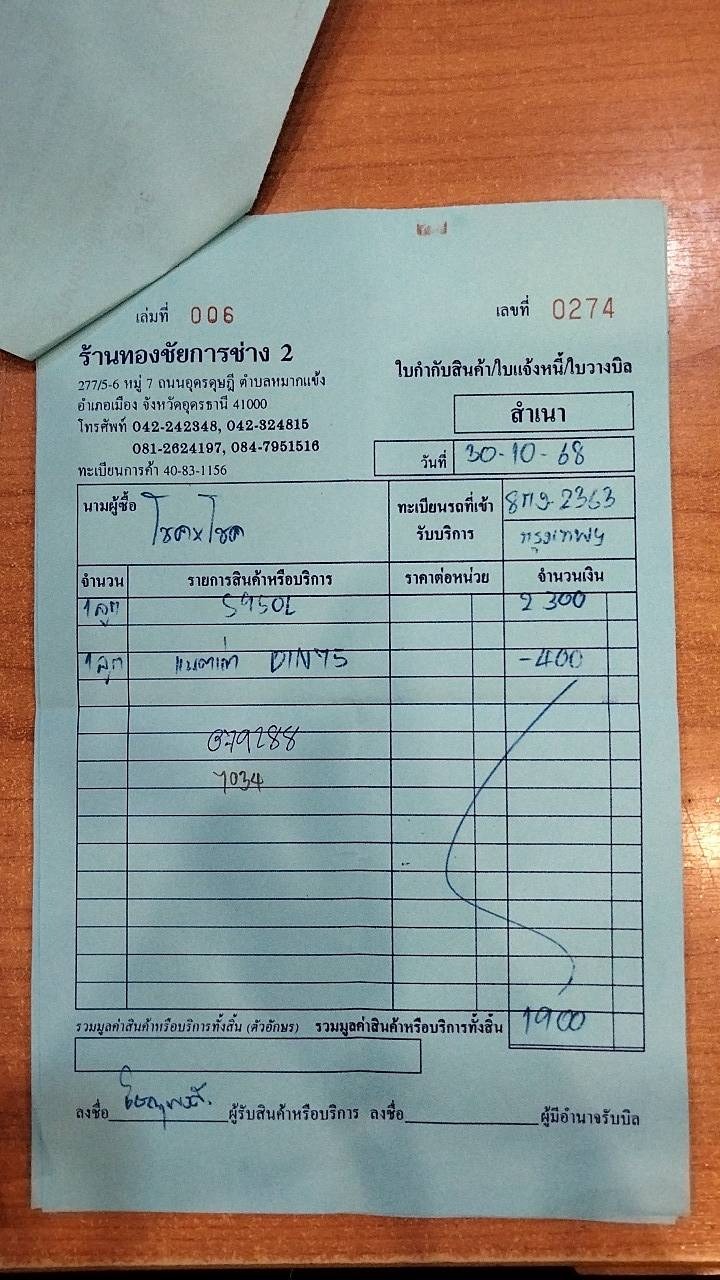 เล่มที่ 006
เลขที่ 0274
ร้านทองชัยการช่าง 2
277/5-6 หมู่ 7 ถนนอุดรดุษฎี ตำบลหมากแข้ง
อำเภอเมือง จังหวัดอุดรธานี 41000
โทรศัพท์ 042-242348, 042-324815
081-2624197, 084-7951516
ทะเบียนการค้า 40-83-1156
ใบกำกับสินค้า/ใบแจ้งหนี้/ใบวางบิล
สำเนา
วันที่ 30-10-68
นามผู้ซื้อ
ทะเบียนรถที่เข้ารับบริการ 2363
กรุงเทพฯ
จำนวน รายการสินค้าหรือบริการ ราคาต่อหน่วย จำนวนเงิน
1 ลูก 2 300
1 ลูก แบตเก่า DIN75 -400
7034
รวมมูลค่าสินค้าหรือบริการทั้งสิ้น (ตัวอักษร) รวมมูลค่าสินค้าหรือบริการทั้งสิ้น 1900
ลงชื่อ ผู้รับสินค้าหรือบริการ ลงชื่อ ผู้มีอำนาจรับบิล